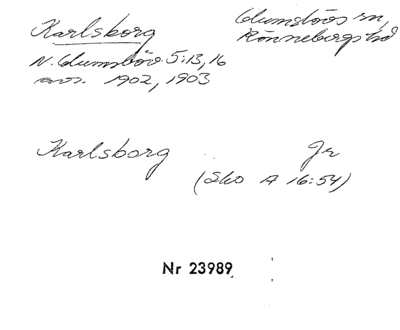 Karlsborg
Glumslövs sn,
Rönnebergs hd
N. Glumslöv 5:13, 16
avs. 1902, 1903
Karlsborg Gr
(Sko A 16:54)
Nr 23989